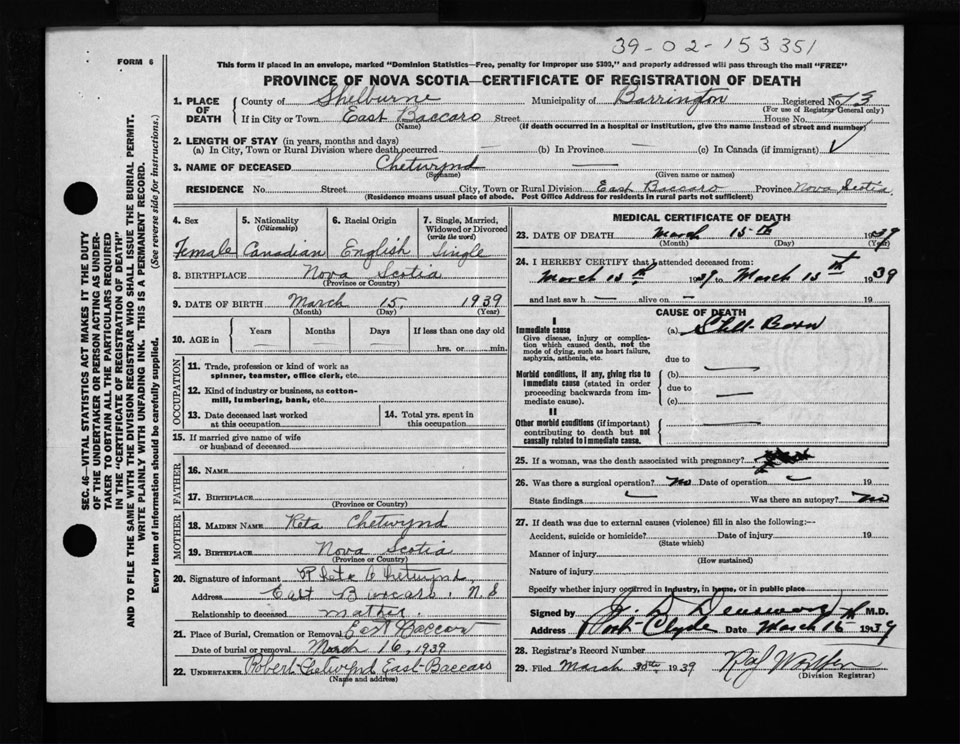 39-02-153351
FORM 6
This form if placed in an envelope, marked "Dominion Statistics—Free, penalty for improper use $300," and properly addressed will pass through the mail "FREE"
PROVINCE OF NOVA SCOTIA—CERTIFICATE OF REGISTRATION OF DEATH
SEC. 46—VITAL STATISTICS ACT MAKES IT THE DUTY
OF THE UNDERTAKER OR PERSON ACTING AS UNDER-
TAKER TO OBTAIN ALL THE PARTICULARS REQUIRED
IN THE "CERTIFICATE OF REGISTRATION OF DEATH"
AND TO FILE THE SAME WITH THE DIVISION REGISTRAR WHO SHALL ISSUE THE BURIAL PERMIT.
WRITE PLAINLY WITH UNFADING INK. THIS IS A PERMANENT RECORD.
Every item of information should be carefully supplied. (See reverse side for instructions.)
1. PLACE OF DEATH County of Shelburne Municipality of Barrington Registered No. 73
(For use of Registrar General only)
If in City or Town East Baccaro Street House No.
(Name) (If death occurred in a hospital or institution, give the name instead of street and number)
2. LENGTH OF STAY (in years, months and days)
(a) In City, Town or Rural Division where death occurred — (b) In Province — (c) In Canada (if immigrant)
3. NAME OF DECEASED Chetwynd —
(Surname) (Given name or names)
RESIDENCE No. Street City, Town or Rural Division East Baccaro Province Nova Scotia
(Residence means usual place of abode. Post Office Address for residents in rural parts not sufficient)
4. Sex 5. Nationality 6. Racial Origin 7. Single, Married,
(Citizenship) Widowed or Divorced
(write the word)
Female Canadian English Single
8. BIRTHPLACE Nova Scotia
(Province or Country)
9. DATE OF BIRTH March 15 1939
(Month) (Day) (Year)
10. AGE in Years Months Days If less than one day old
— — — hrs. or min.
OCCUPATION
11. Trade, profession or kind of work as
spinner, teamster, office clerk, etc.
12. Kind of industry or business, as cotton-
mill, lumbering, bank, etc.
13. Date deceased last worked 14. Total yrs. spent in
at this occupation this occupation
15. If married give name of wife
or husband of deceased
FATHER
16. NAME
17. BIRTHPLACE
(Province or Country)
MOTHER
18. MAIDEN NAME Reta Chetwynd
19. BIRTHPLACE Nova Scotia
(Province or Country)
20. Signature of informant Chetwynd
Address East Baccaro, N.S
Relationship to deceased mother.
21. Place of Burial, Cremation or Removal East Baccaro
Date of burial or removal March 16, 1939
22. UNDERTAKER Robert Chetwynd East Baccaro
(Name and address)
MEDICAL CERTIFICATE OF DEATH
23. DATE OF DEATH March 15th 1939
(Month) (Day) (Year)
24. I HEREBY CERTIFY that I attended deceased from:
March 15th 1939 to March 15th 1939
and last saw h — alive on — 19
CAUSE OF DEATH
I
Immediate cause (a) Still-Born
Give disease, injury or complica-
tion which caused death, not the
mode of dying, such as heart failure,
asphyxia, asthenia, etc.
due to
Morbid conditions, if any, giving rise to (b) —
immediate cause (stated in order due to
proceeding backwards from im-
mediate cause). (c) —
II
Other morbid conditions (if important)
contributing to death but not
causally related to immediate cause.
25. If a woman, was the death associated with pregnancy?
26. Was there a surgical operation? No Date of operation —
State findings — Was there an autopsy? No
27. If death was due to external causes (violence) fill in also the following:—
Accident, suicide or homicide? Date of injury 19
(State which)
Manner of injury
(How sustained)
Nature of injury
Specify whether injury occurred in industry, in home, or in public place
Signed by M.D.
Address Port Clyde Date March 15 1939
28. Registrar's Record Number
29. Filed March 30th 1939
(Division Registrar)